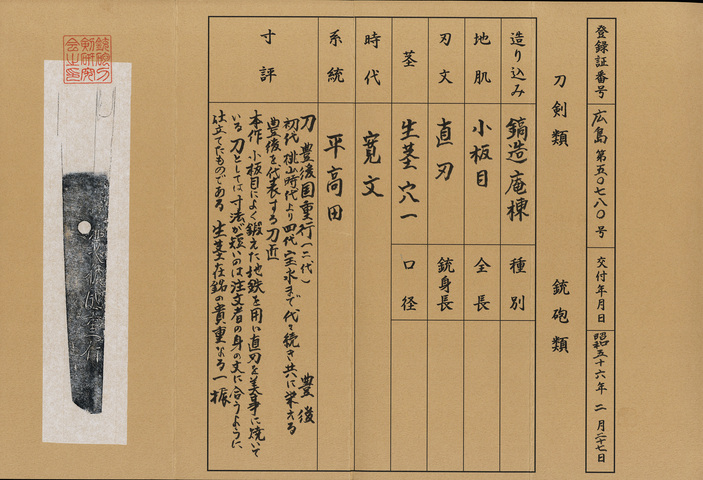 登録証番号 広島 第五〇七八〇号 交付年月日 昭和五十六年二月二十七日
刀剣類 銃砲類
造り込み 鎬造庵棟 種別
地肌 小板目 全長
刃文 直刃 銃身長
茎 生茎 穴一 口径
時代 寛文
系統 平高田
寸評 刀 豊後国重行(二代) 豊後
初代 桃山時代より四代 宝永まで代々続き共に栄える
豊後を代表する刀匠
本作 小板目によく鍛えた地鉄を用い直刃を美事に焼いて
いる 刀としては寸法が短いのは注文者の身の丈に合うように
仕立てたものである 生茎在銘の貴重なる一振